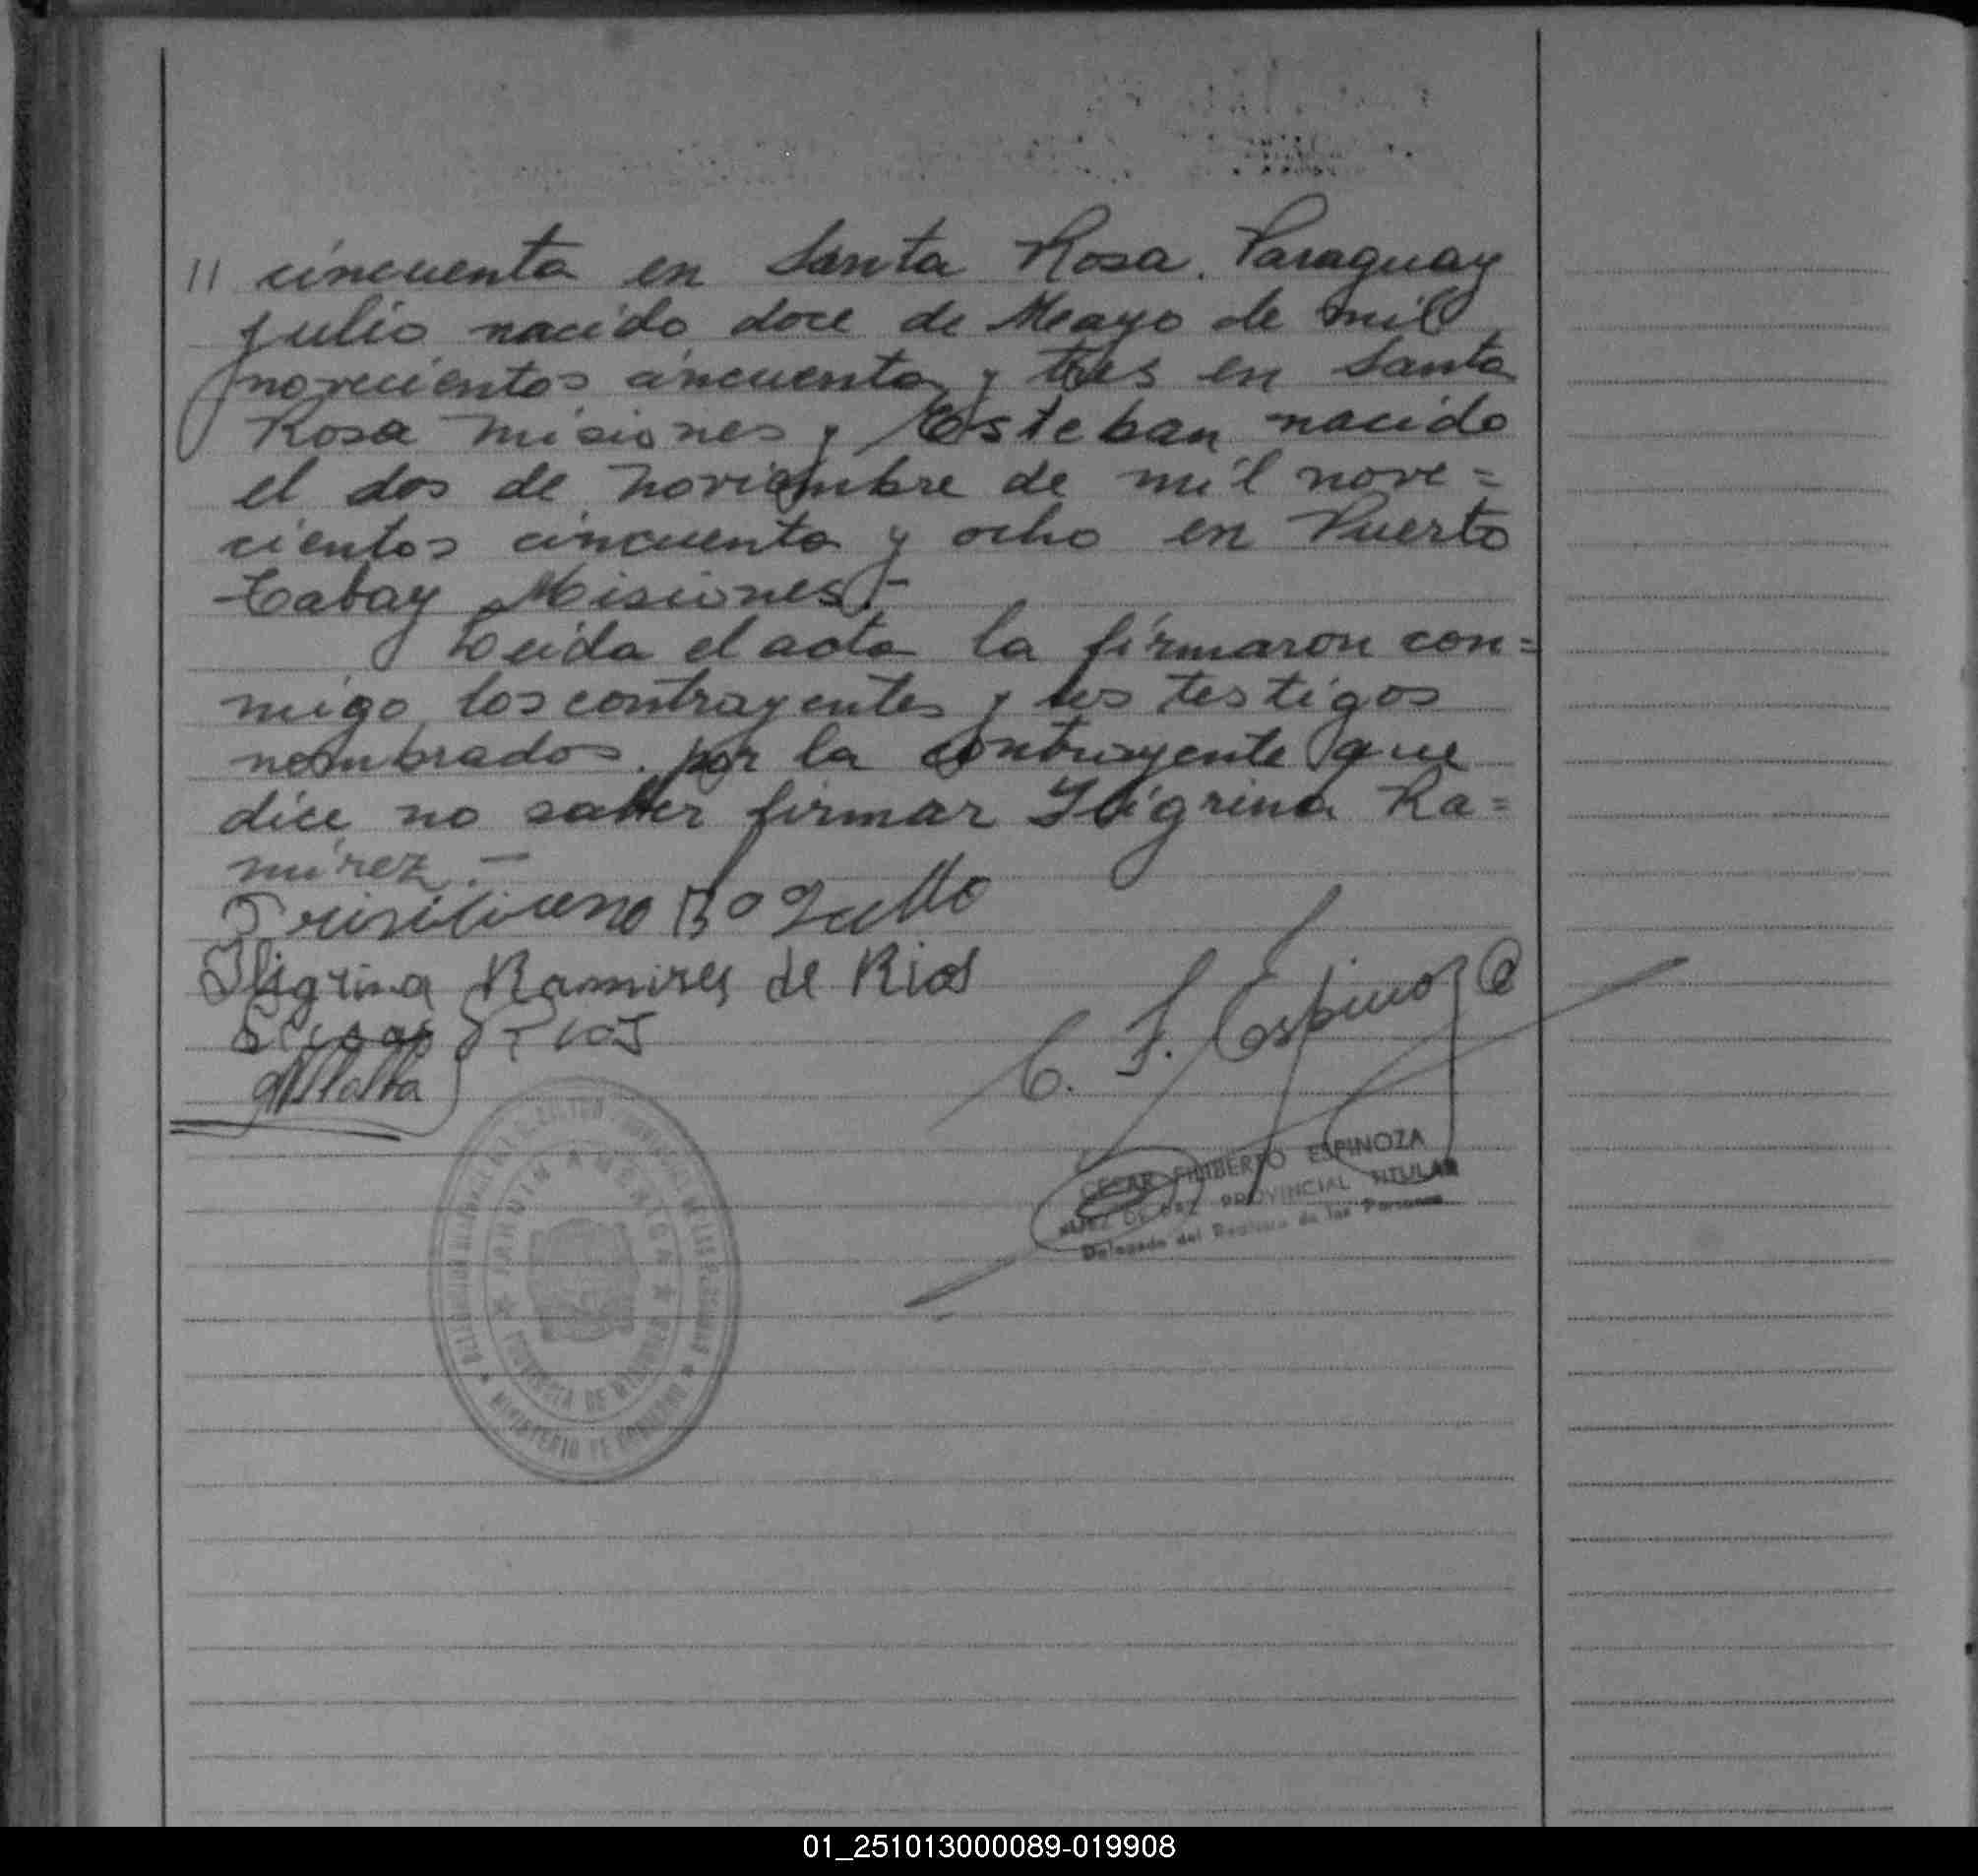 11 cincuenta en Santa Rosa. Paraguay
Julio nacido doce de Mayo de mil
novecientos cincuenta y tres en Santa
Rosa Misiones y Esteban nacido
el dos de noviembre de mil nove=
cientos cincuenta y ocho en Puerto
Tabay Misiones.-
Leida el acta la firmaron con=
migo los contrayentes y los testigos
nombrados. por la contrayente que
dice no saber firmar Iligrina Ra=
mirez.-
Iligrina Ramires de Rios
Rios
C. F. Espinoza
CESAR FILIBERTO ESPINOZA
JUEZ DE PAZ PROVINCIAL TITULAR
Delegado del Registro de las Personas
JARDIN AMERICA
PROVINCIA DE MISIONES
MINISTERIO DE GOBIERNO
01_251013000089-019908